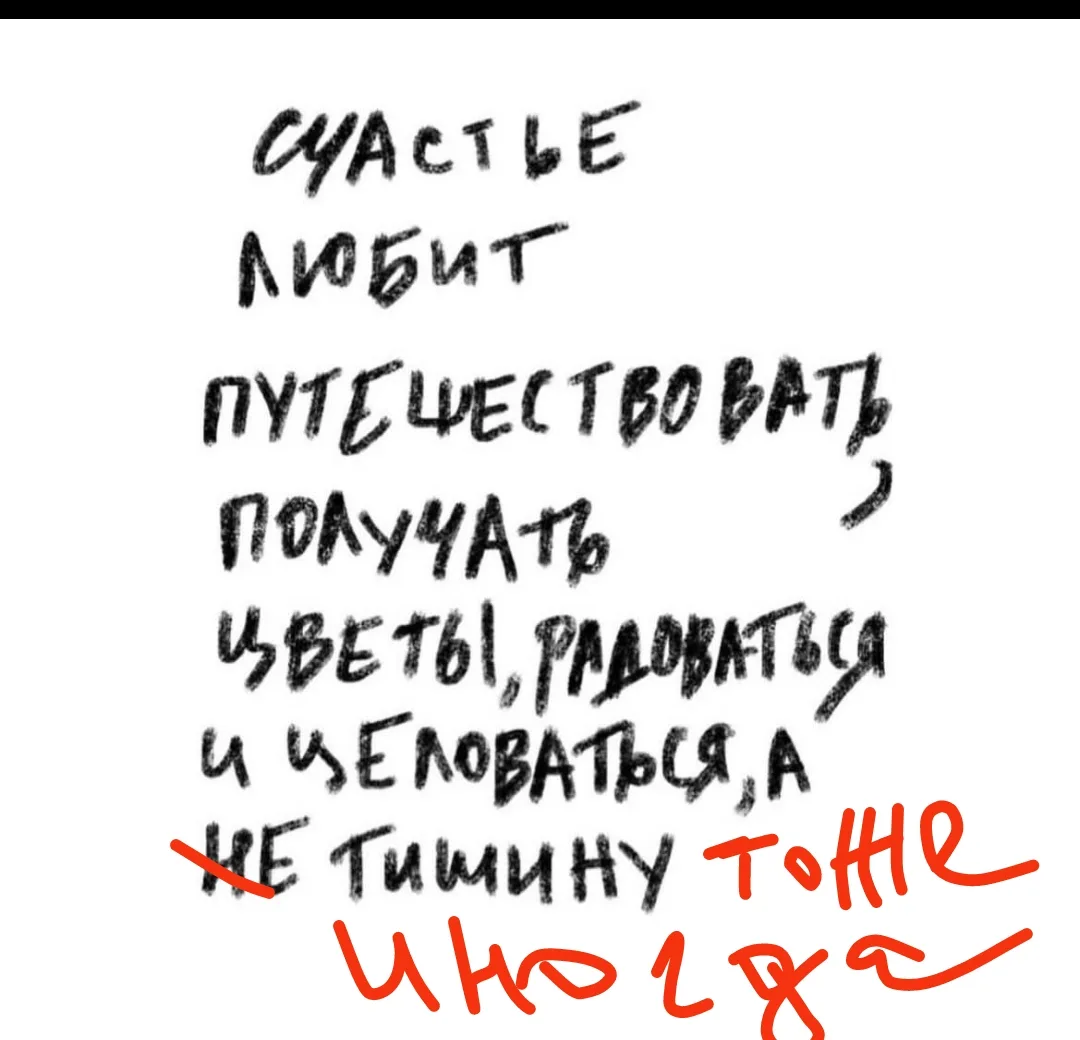 СЧАСТЬЕ
ЛЮБИТ
ПУТЕШЕСТВОВАТЬ,
ПОЛУЧАТЬ
ЦВЕТЫ, РАДОВАТЬСЯ
И ЦЕЛОВАТЬСЯ, А
НЕ ТИШИНУ тоже
иногда